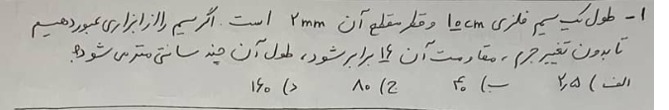 ۱- طول یک سیم فلزی ۱۰cm و قطر مقطع آن ۲mm است. اگر سیم را از ابزاری عبور دهیم
تا بدون تغییر جرم، مقاومت آن ۱۶ برابر شود، طول آن چند سانتی متر می شود؟
الف) ۲٫۵ ب) ۴۰ ج) ۸۰ د) ۱۶۰